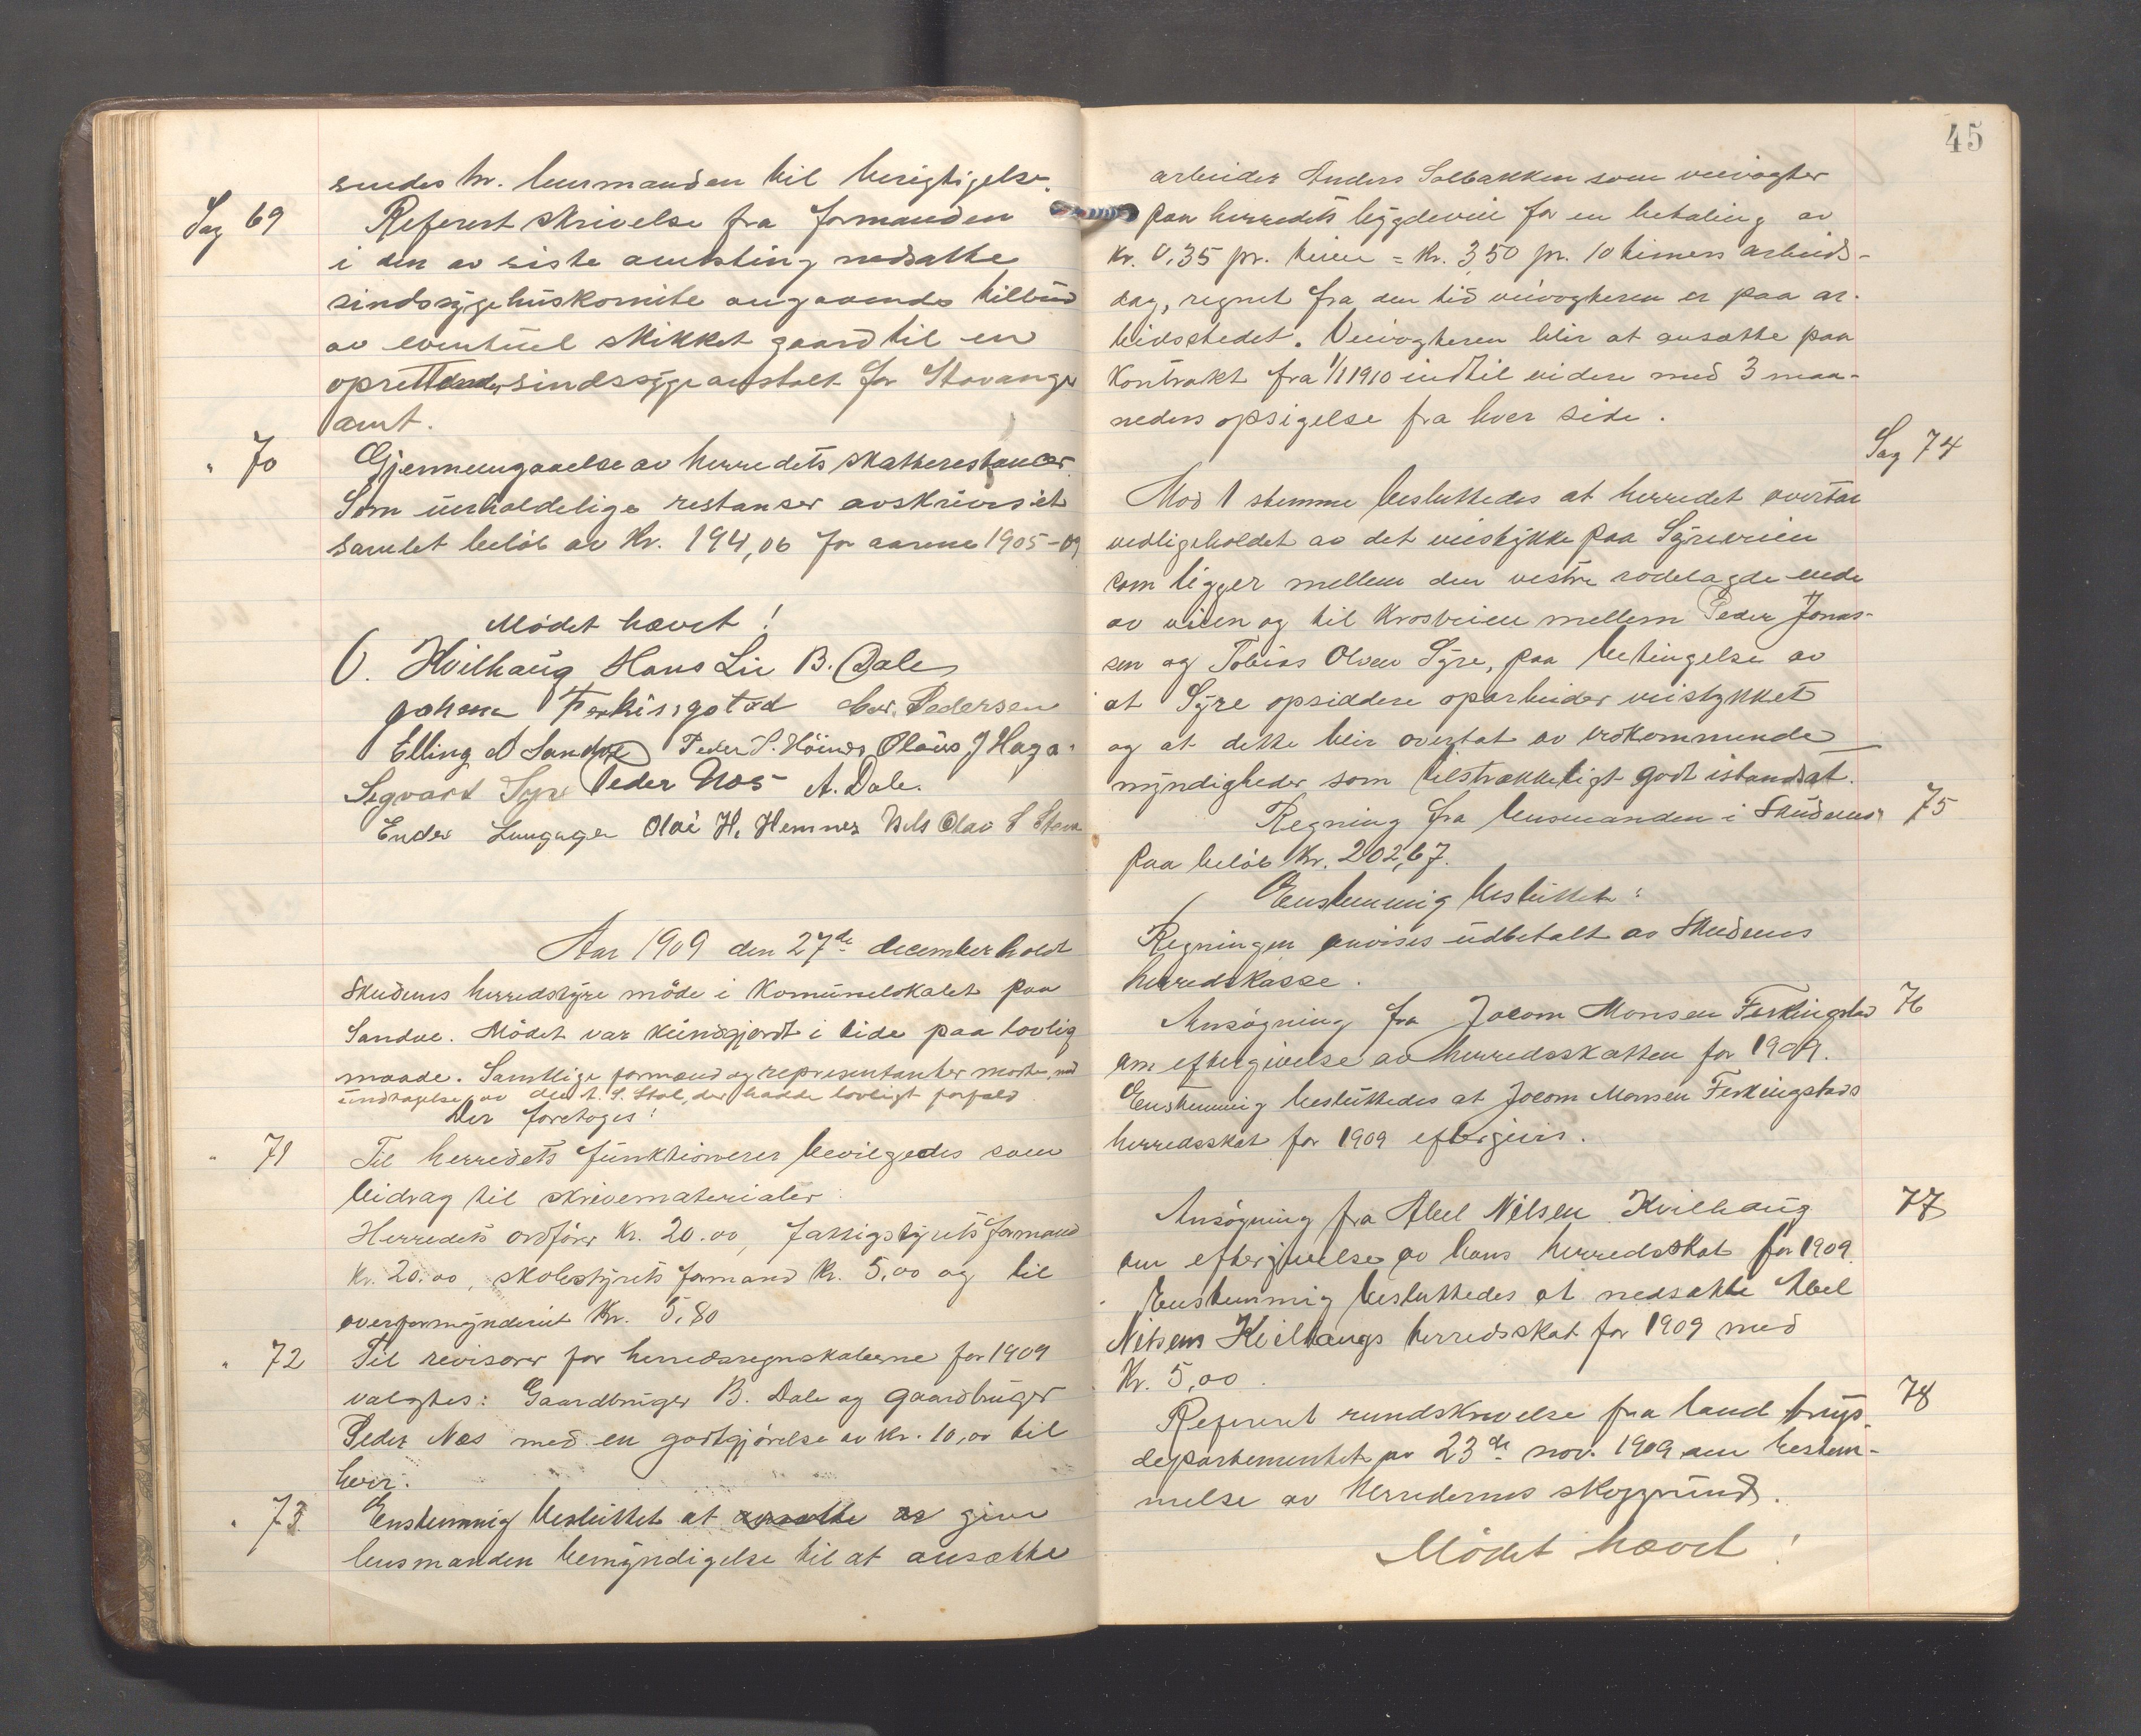 sendes hr. lensmanden til berigtigelse.
Sag 69 Referert skrivelse fra formanden
i den av siste amtsting nedsatte
sindssygehuskomite angaaende tilbud
av eventuel skikket gaard til en
oprettendes sindssygeanstalt for Stavanger
amt.
" 70 Gjennemgaaelse av herredets skatterestancer.
Som uerholdelige restanser avskrives et
samlet beløb av Kr. 194,06 for aarene 1905-09
Mødet hævet!
O. Hvilhaug Hans Lie B. Dale
Johan Ferkingstad Pedersen
Elling A Sandve Peder S. Höines Olaus J Haga
Segvart Syre Peder Næs A. Dale.
Ender Langager Olai H. Hemnes Nils Olav S Stava
Aar 1909 den 27de december holdt
Skudenes herredstyre møde i Komunelokalet paa
Sandve. Mødet var kundgjordt i tide paa lovlig
maade. Samtlige formænd og representanter mødte, med
undtagelse av S. Stol, der hadde lovligt forfald
Der foretoges:
" 71 Til herredets funktionærer bevilgedes som
bidrag til skrivematerialer:
Herredets ordfører Kr. 20.00, fattigstyrets formand
Kr. 20.00, skolestyrets formand Kr. 5,00 og til
overformynderiet Kr. 5,80
" 72 Til revisorer for herredsregnskaberne for 1909
valgtes: Gaardbruger B. Dale og gaardbruger
Peder Næs med en godtgjørelse av Kr. 10,00 til
hver.
" 73 Enstemmig besluttet at ansætte as give
lensmanden bemyndigelse til at ansætte
45
arbeider Anders Solbakken som veivogter
paa herredets bygdeveie for en betaling av
Kr. 0,35 pr. time = Kr. 3,50 pr. 10 timers arbeids-
dag, regnet fra den tid veivogteren er paa ar-
beidsstedet. Veivogteren blir at ansætte paa
Kontrakt fra 1/1 1910 indtil videre med 3 maa-
neders opsigelse fra hver side.
Sag 74
Mod 1 stemme besluttedes at herredet overtar
vedligeholdet av det veistykke paa Syreveien
som ligger mellem den vestre rodelagde ende
av veien og til Krosveien mellem Peder Jonas-
sen og Tobias Olsen Syre, paa betingelse av
at Syre opsiddere oparbeider veistykket
og at dette blir overtat av vedkommende
myndigheder som tilstrækkeligt godt istandsat.
Regning fra lensmanden i Skudenes 75
paa beløb Kr. 202,67.
Enstemmig besluttet:
Regningen anvises udbetalt av Skudenes
herredskasse.
Ansøgning fra Jocom Monsen Ferkingstad 76
om eftergivelse av herredsskatten for 1909.
Enstemmig besluttedes at Jocom Monsen Ferkingstads
herredsskat for 1909 eftergives.
Ansøgning fra Abel Nilsen Kvilhaug 77
om eftergivelse av hans herredsskat for 1909.
Enstemmig besluttedes at nedsætte Abel
Nilsens Kvilhaugs herredsskat for 1909 med
Kr. 5,00.
Referert rundskrivelse fra landbrugs- 78
departementet av 23de nov. 1909 om bestem-
melse av herredernes skoggrund.
Mødet hævet!